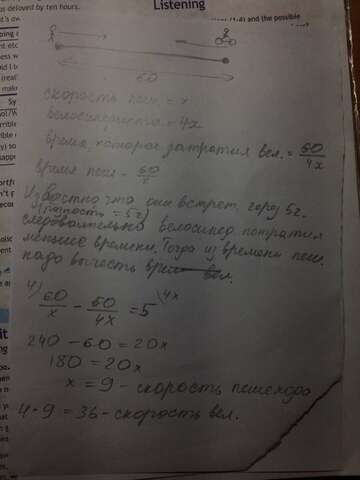 Listening
60
скорость пеш. = x
велосипедиста = 4x
время, которое затратил вел. = 60/4x
время пеш - 60/x
Известно что они встрет. через 5ч.
(разность = 5ч)
следовательно велосипед потратил
меньше времени. Тогда из времени пеш.
надо вычесть время вел.
4)
60/x - 60/4x = 5 \4x
240 - 60 = 20x
180 = 20x
x = 9 - скорость пешехода
4·9 = 36 - скорость вел.